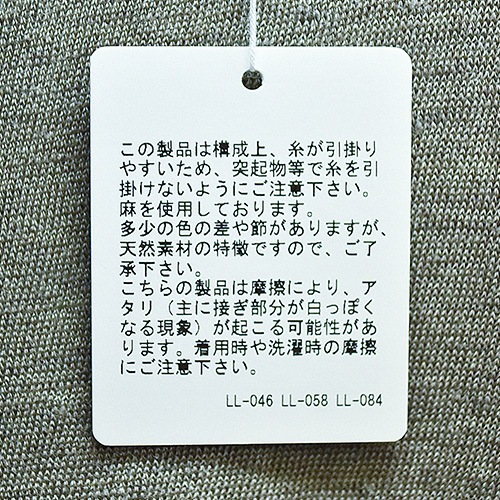 この製品は構成上、糸が引掛り
やすいため、突起物等で糸を引
掛けないようにご注意下さい。
麻を使用しております。
多少の色の差や節がありますが、
天然素材の特徴ですので、ご了
承下さい。
こちらの製品は摩擦により、ア
タリ（主に接ぎ部分が白っぽく
なる現象）が起こる可能性があ
ります。着用時や洗濯時の摩擦
にご注意下さい。
LL-046 LL-058 LL-084